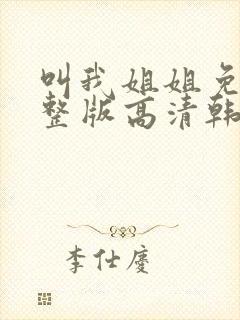 叫我姐姐免
整版高清韩
李仕廖